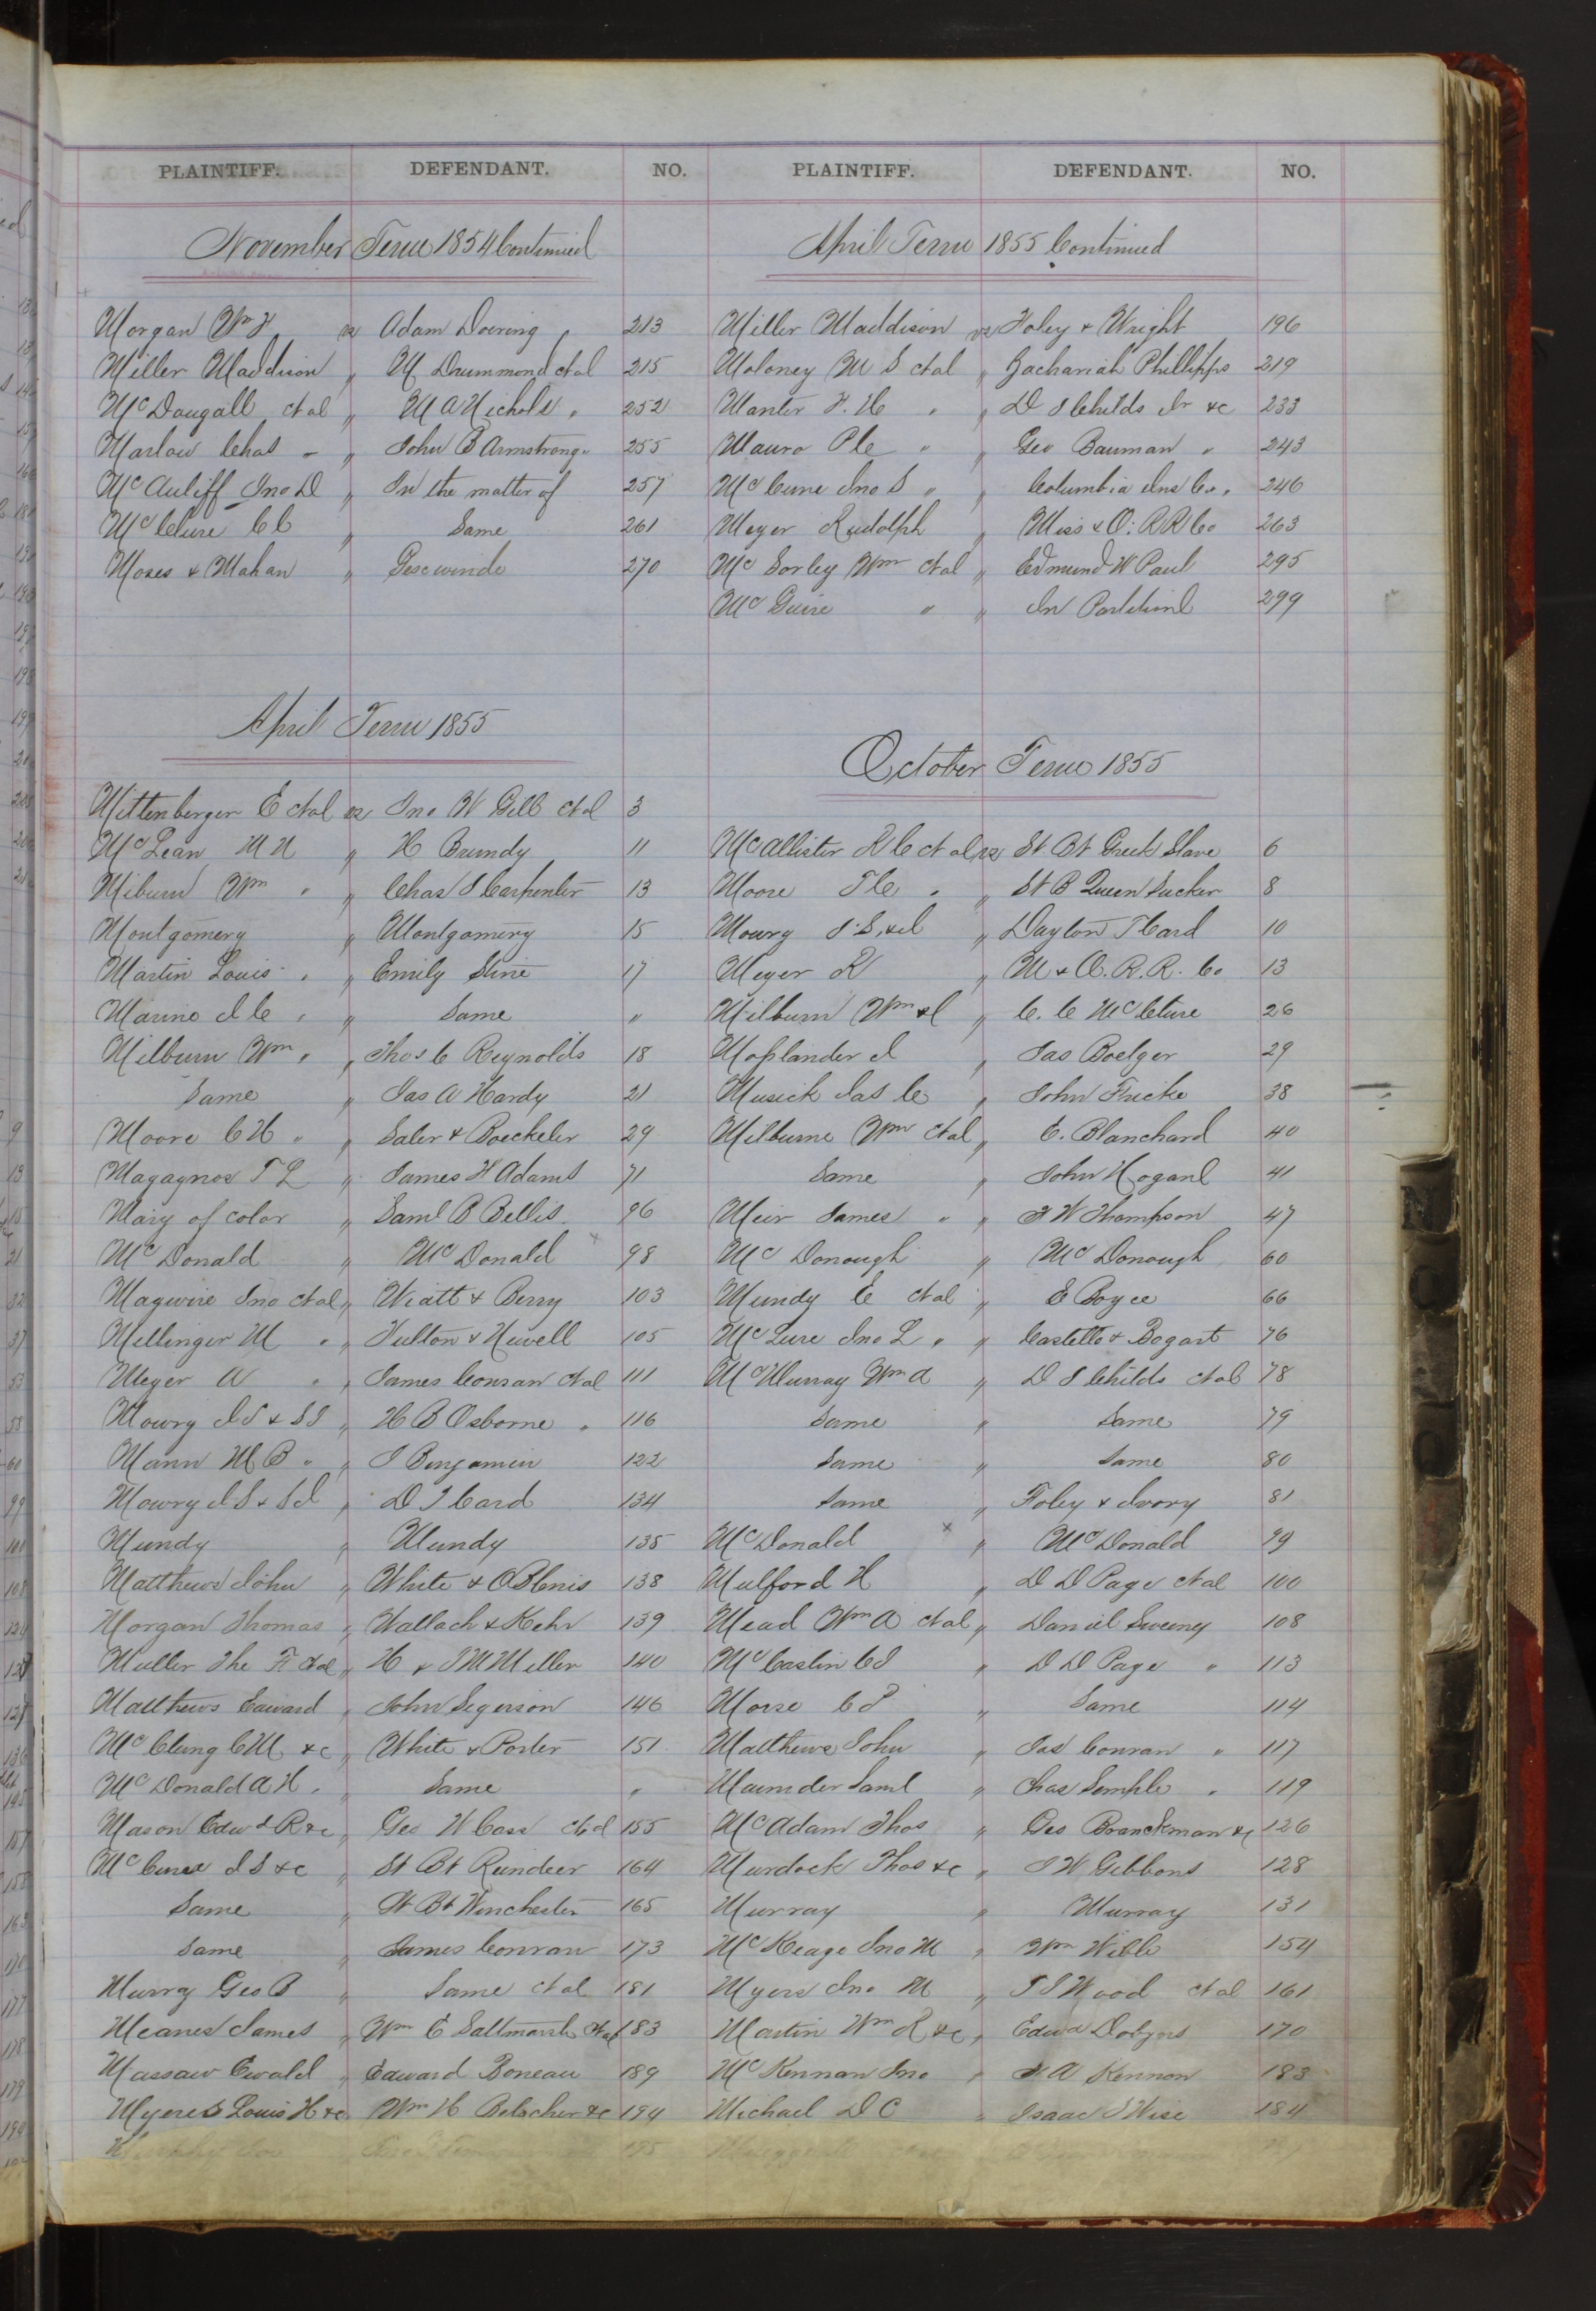 PLAINTIFF. DEFENDANT. NO.
November Term 1854 Continued
Morgan Wm F vs Adam Doering 213
Miller Maddison " M Drummond etal 215
McDougall etal " M A Nichols " 252
Marlow Chas " John B Armstrong " 255
McAuliff Jno D " In the matter of 257
McClure C C " Same 261
Moses & Mahan " Gesewinde 270
April Term 1855
Mittenberger E etal vs Jno W Gill etal 3
McLean M N " H Brundy 11
Miburn Wm " " Chas S Carpenter 13
Montgomery " Montgomery 15
Martin Louis " " Emily Stine 17
Marino J C " " Same "
Milburn Wm " " Thos C Reynolds 18
Same " Jas A Hardy 21
Moore C H " " Saler & Boeckeler 29
Magagnos T L " James H Adams 71
Mary of color " Saml B Bellis 96
McDonald " McDonald 98
Magwire Jno etal " Wiatt & Berry 103
Mellinger M " " Hulton & Newell 105
Meyer A " " James Conran etal 111
Mowry J S & S S " H B Osborne " 116
Mann M B " " J Benjamin 122
Mowry J S & S J " D T Card 134
Mundy " Mundy 135
Matthews John " White & OBlenis 138
Morgan Thomas " Wallach & Kehr 139
Muller The F etal " H & J M Miller 140
Matthews Edward " John Segerson 146
McClung C M &c " White & Porter 151
McDonald A H " " Same "
Mason Edwd R &c " Geo W Cass etal 155
McCune J S &c " St Bt Reindeer 164
Same " St Bt Winchester 165
Same " James Conran 173
Murry Geo B " Same etal 181
Meanes James " Wm E Saltmarsh etal 183
Massaw Ewald " Edward Boneau 189
Myeres Louis H &c " Wm H Belscher &c 194
195
PLAINTIFF. DEFENDANT. NO.
April Term 1855 Continued
Miller Maddison vs Foley & Wright 196
Moloney M S etal " Zachariah Phillipps 219
Manter F. H " " D S Childs Jr &c 233
Mauro P C " " Geo Bauman " 243
McCune Jno S " " Columbia Ins Co " 246
Meyer Rudolph " Miss & O. RR Co 263
McSorley Wm etal " Edmund W Paul 295
McGuire " " In Partition 299
October Term 1855
McAllister R C etal vs St Bt Greek Slave 6
Moore T C " " St B Queen Sucker 8
Mowry J. S. &al " Dayton T Card 10
Meyer R " M & O. R. R. Co 13
Milburn Wm &al " C. C McClure 26
Moslander J " Jas Boelger 29
Musick Jas C " John Fricke 38
Milburne Wm etal " E. Blanchard 40
Same " John Hogan 41
Meir James " " F W Thompson 47
McDonough " McDonough 60
Mundy E etal " E Boyce 66
McLure Jno L " " Castello & Bogart 76
McMurray Wm A " D S Childs etal 78
Same " Same 79
Same " Same 80
Same " Foley & Ivory 81
McDonald " McDonald 99
Mulford H " D D Page etal 100
Mead Wm A etal " Daniel Sweeney 108
McCaslin C S " D D Page " 113
Morse C P " Same 114
Matthews John " Jas Conran " 117
Maunder Saml " Chas Semple " 119
McAdam Thos " Geo Branckman &c 126
Murdock Thos &c " J W Gibbons 128
Murray " Murray 131
McKeage Jno M " Wm Wible 154
Myers Jno M " T S Wood etal 161
Martin Wm R &c " Edwd Dodgers 170
McKennan Jno " F. A Kennon 183
Michael D C " Isaac S Wise 184